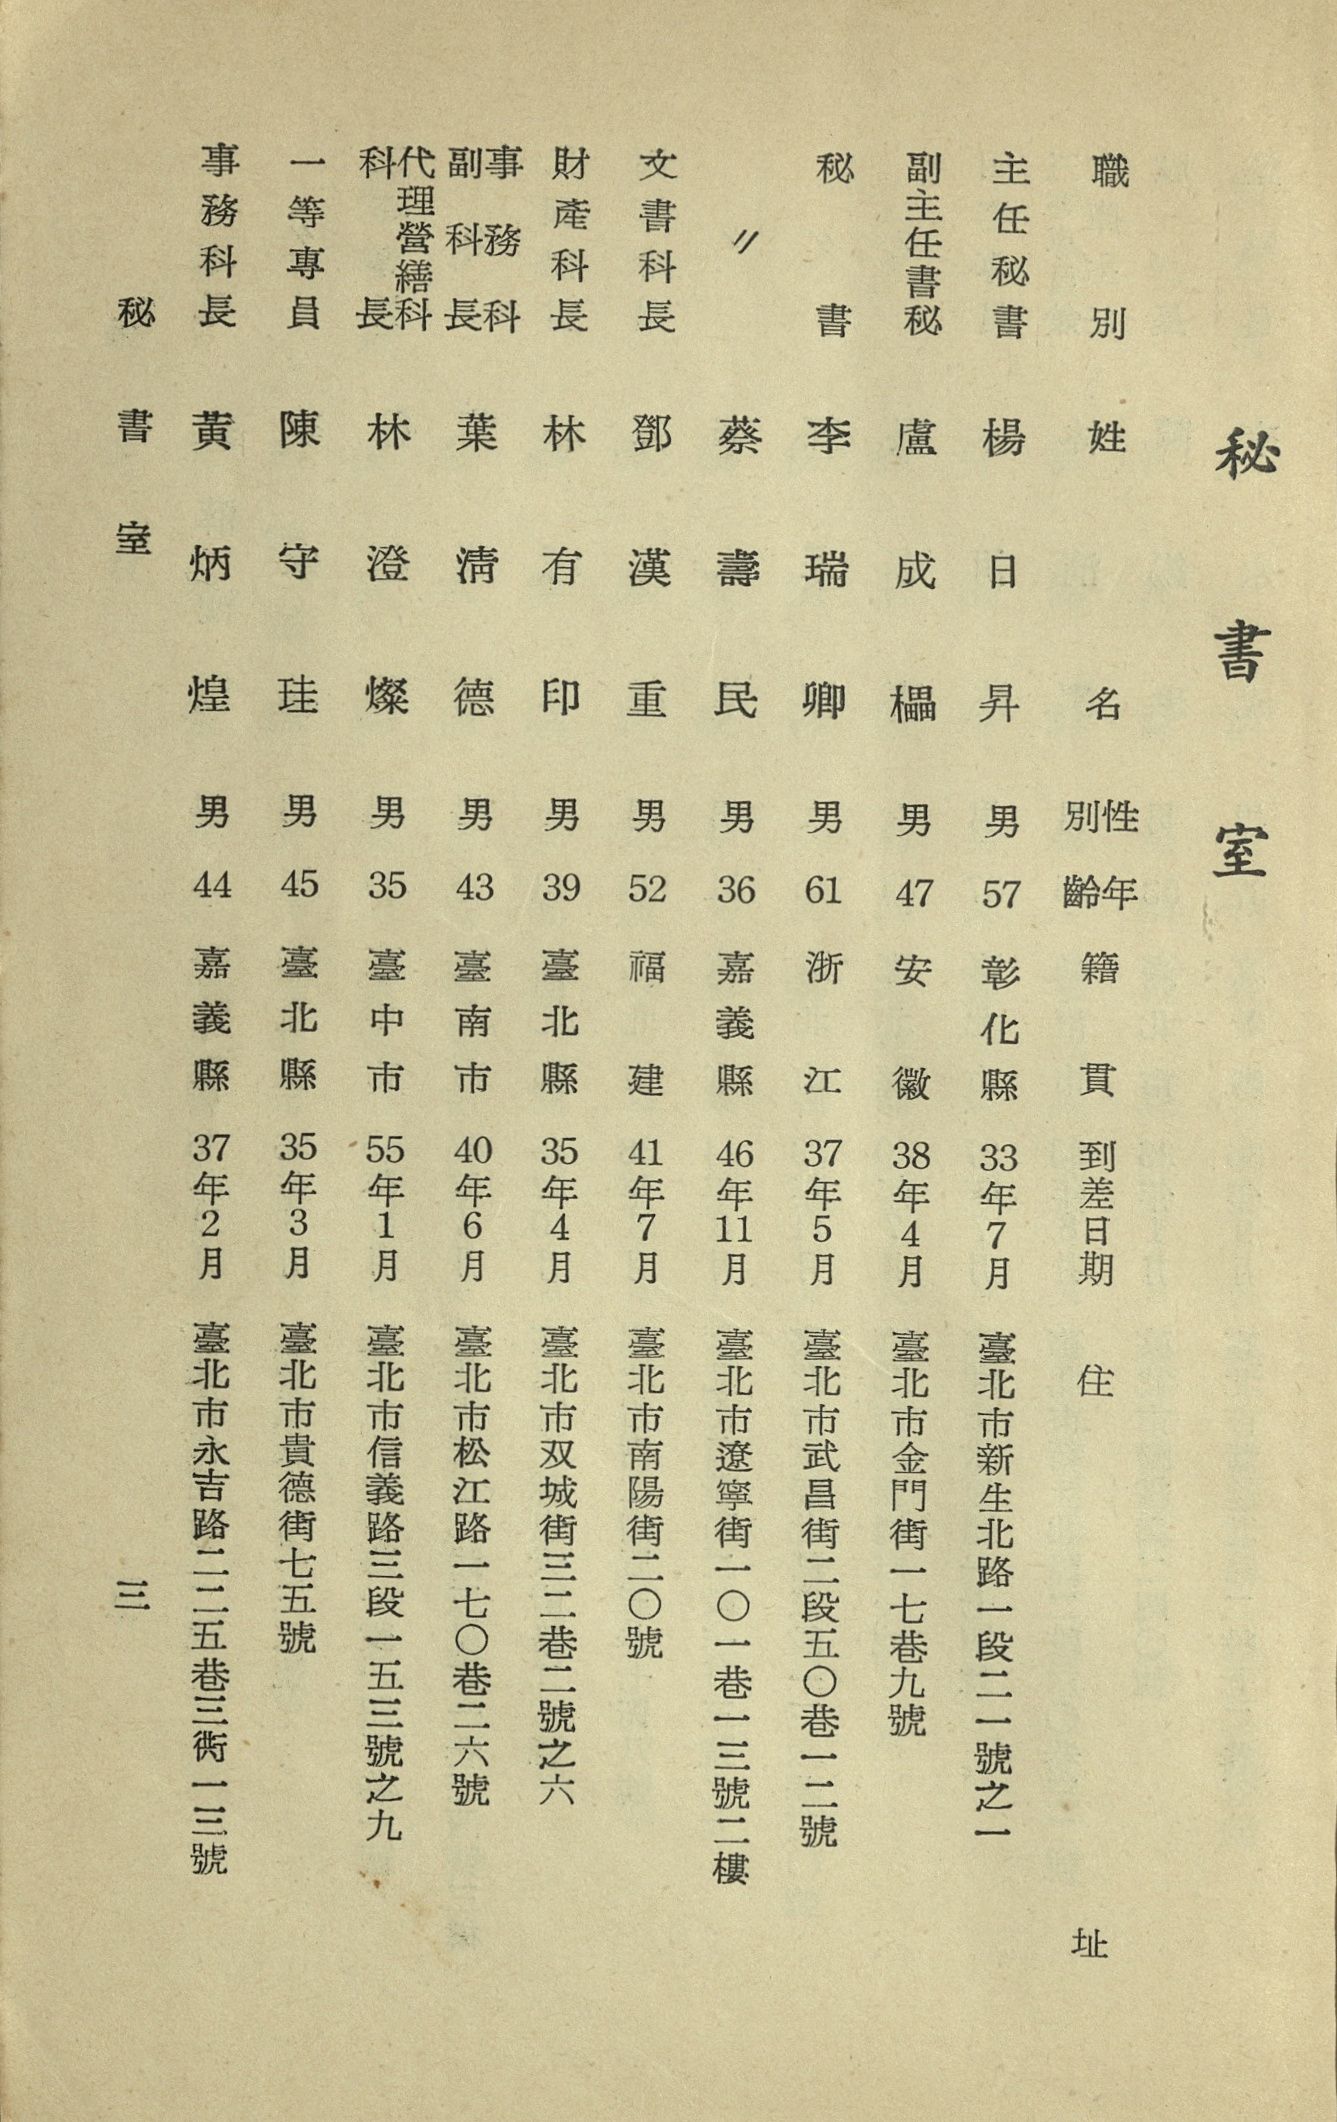 秘書室
職別 姓名 性別 年齡 籍貫 到差日期 住址
主任秘書 楊日昇 男 57 彰化縣 33年7月 臺北市新生北路一段二一號之一
副主任書秘 盧成櫑 男 47 安徽 38年4月 臺北市金門街一七巷九號
秘書 李瑞卿 男 61 浙江 37年5月 臺北市武昌街二段五〇巷一二號
〃 蔡壽民 男 36 嘉義縣 46年11月 臺北市遼寧街一〇一巷一三號二樓
文書科長 鄧漢重 男 52 福建 41年7月 臺北市南陽街二〇號
財產科長 林有印 男 39 臺北縣 35年4月 臺北市双城街三二巷二號之六
事務科副科長 葉淸德 男 43 臺南市 40年6月 臺北市松江路一七〇巷二六號
代理營繕科科長 林澄燦 男 35 臺中市 55年1月 臺北市信義路三段一五三號之九
一等專員 陳守珪 男 45 臺北縣 35年3月 臺北市貴德街七五號
事務科長 黃炳煌 男 44 嘉義縣 37年2月 臺北市永吉路二二五巷三衖一三號
秘書室 三